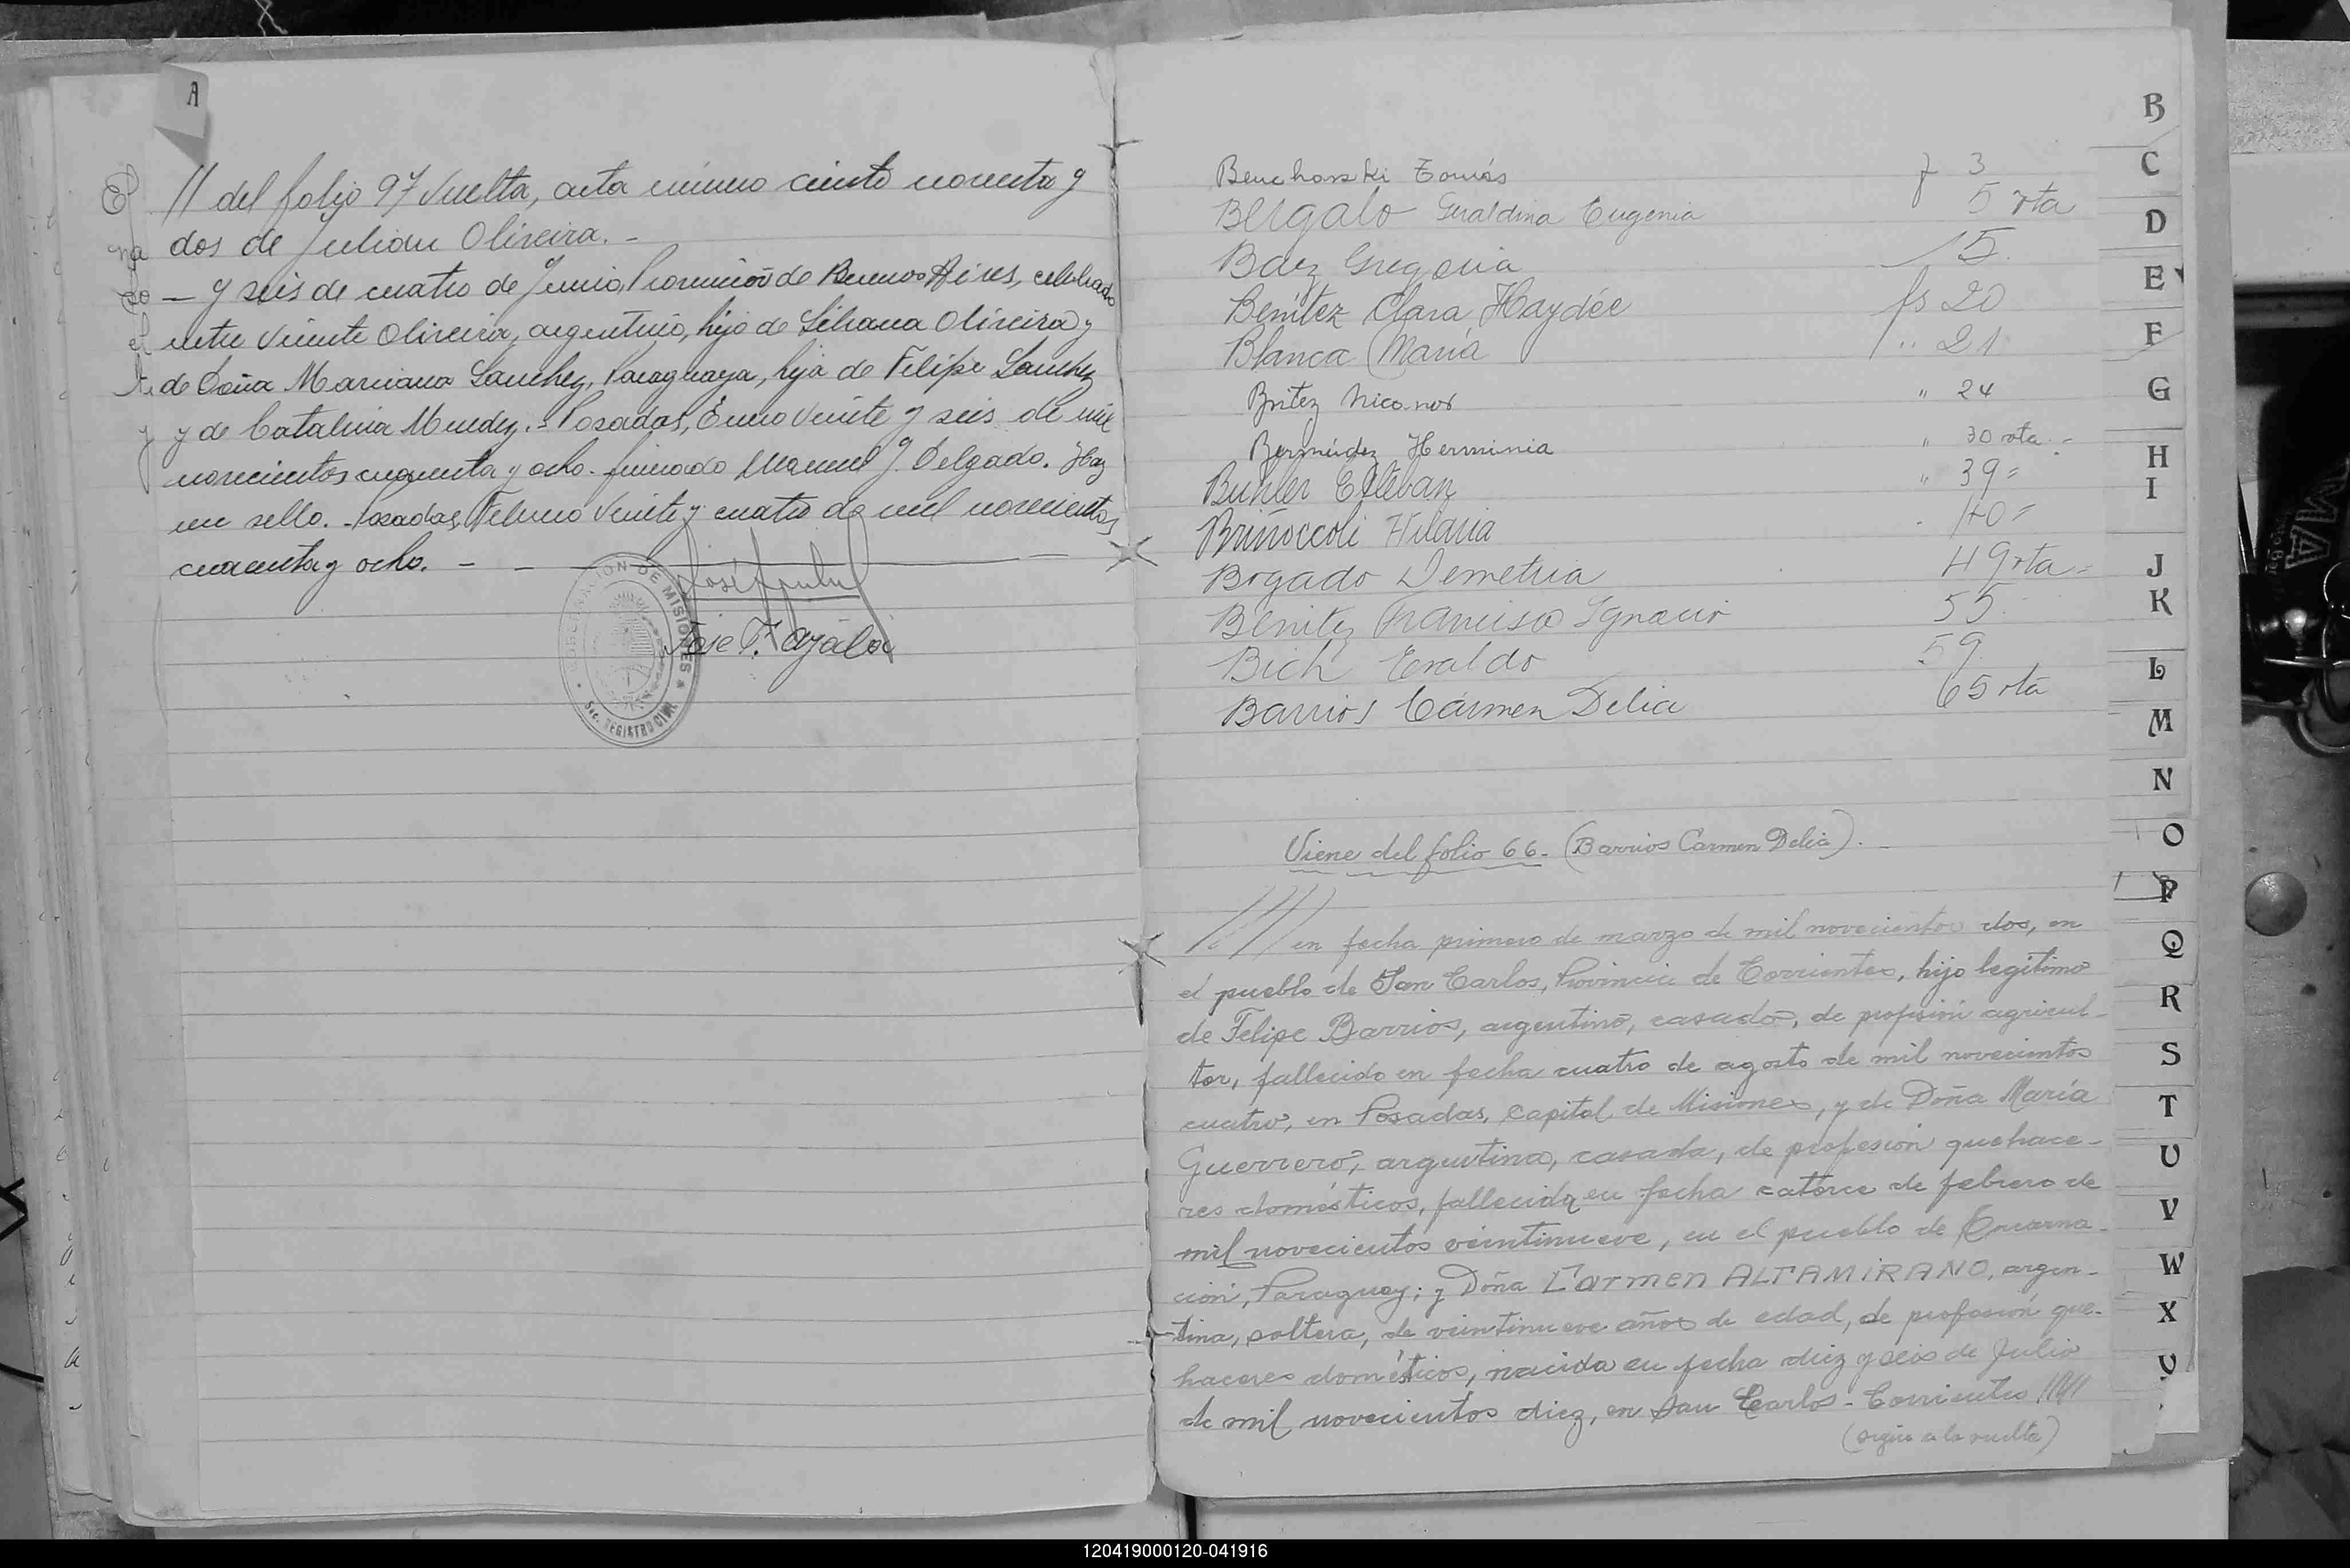 A
// del folio 97 vuelta, acta número ciento noventa y
dos de Julian Oliveira. -
- y seis de cuatro de Junio, Provincia de Buenos Aires, celebrado
entre Vicente Oliveira, argentino, hijo de Liliana Oliveira y
de Doña Marciana Sanchez, Paraguaya, hija de Felipe Sanchez
y de Catalina Mendez. - Posadas, Enero veinte y seis de mil
novecientos cuarenta y ocho. firmado Manuel J. Delgado. Hay
un sello. - Posadas, Febrero veinte y cuatro de mil novecientos
cuarenta y ocho. -
GOBERNACION DE MISIONES
Sec. REGISTRO CIVIL
José F. Ayala
Bencharski Tomás f 3
Bergalo Geraldina Eugenia 5 vta
Baez Gregoria 15.
Benítez Clara Haydée fs 20
Blanca María " 21
Britez Nicanor " 24
Bermúdez Herminia " 30 vta. -
Buhler Esteban " 39 =
Briñoccoli Hilaria 40 =
Bogado Demetria 49 vta =
Benitez Francisco Ignacio 55.
Bich Eraldo 59
Barrios Cármen Delia 65 vta
Viene del folio 66. - (Barrios Carmen Delia). -
//// en fecha primero de marzo de mil novecientos dos, en
el pueblo de San Carlos, Provincia de Corrientes, hijo legítimo
de Felipe Barrios, argentino, casado, de profesión agricul-
tor, fallecido en fecha cuatro de agosto de mil novecientos
cuatro, en Posadas, capital de Misiones, y de Doña María
Guerrero, argentina, casada, de profesión quehace-
res domésticos, fallecida en fecha catorce de febrero de
mil novecientos veintinueve, en el pueblo de Encarna-
ción, Paraguay; y Doña Carmen ALTAMIRANO, argen-
tina, soltera, de veintinueve años de edad, de profesión que-
haceres domésticos, nacida en fecha diez y seis de Julio
de mil novecientos diez, en San Carlos - Corrientes /////
(sigue a la vuelta)
B
C
D
E
F
G
H
I
J
K
L
M
N
O
P
Q
R
S
T
U
V
W
X
120419000120-041916